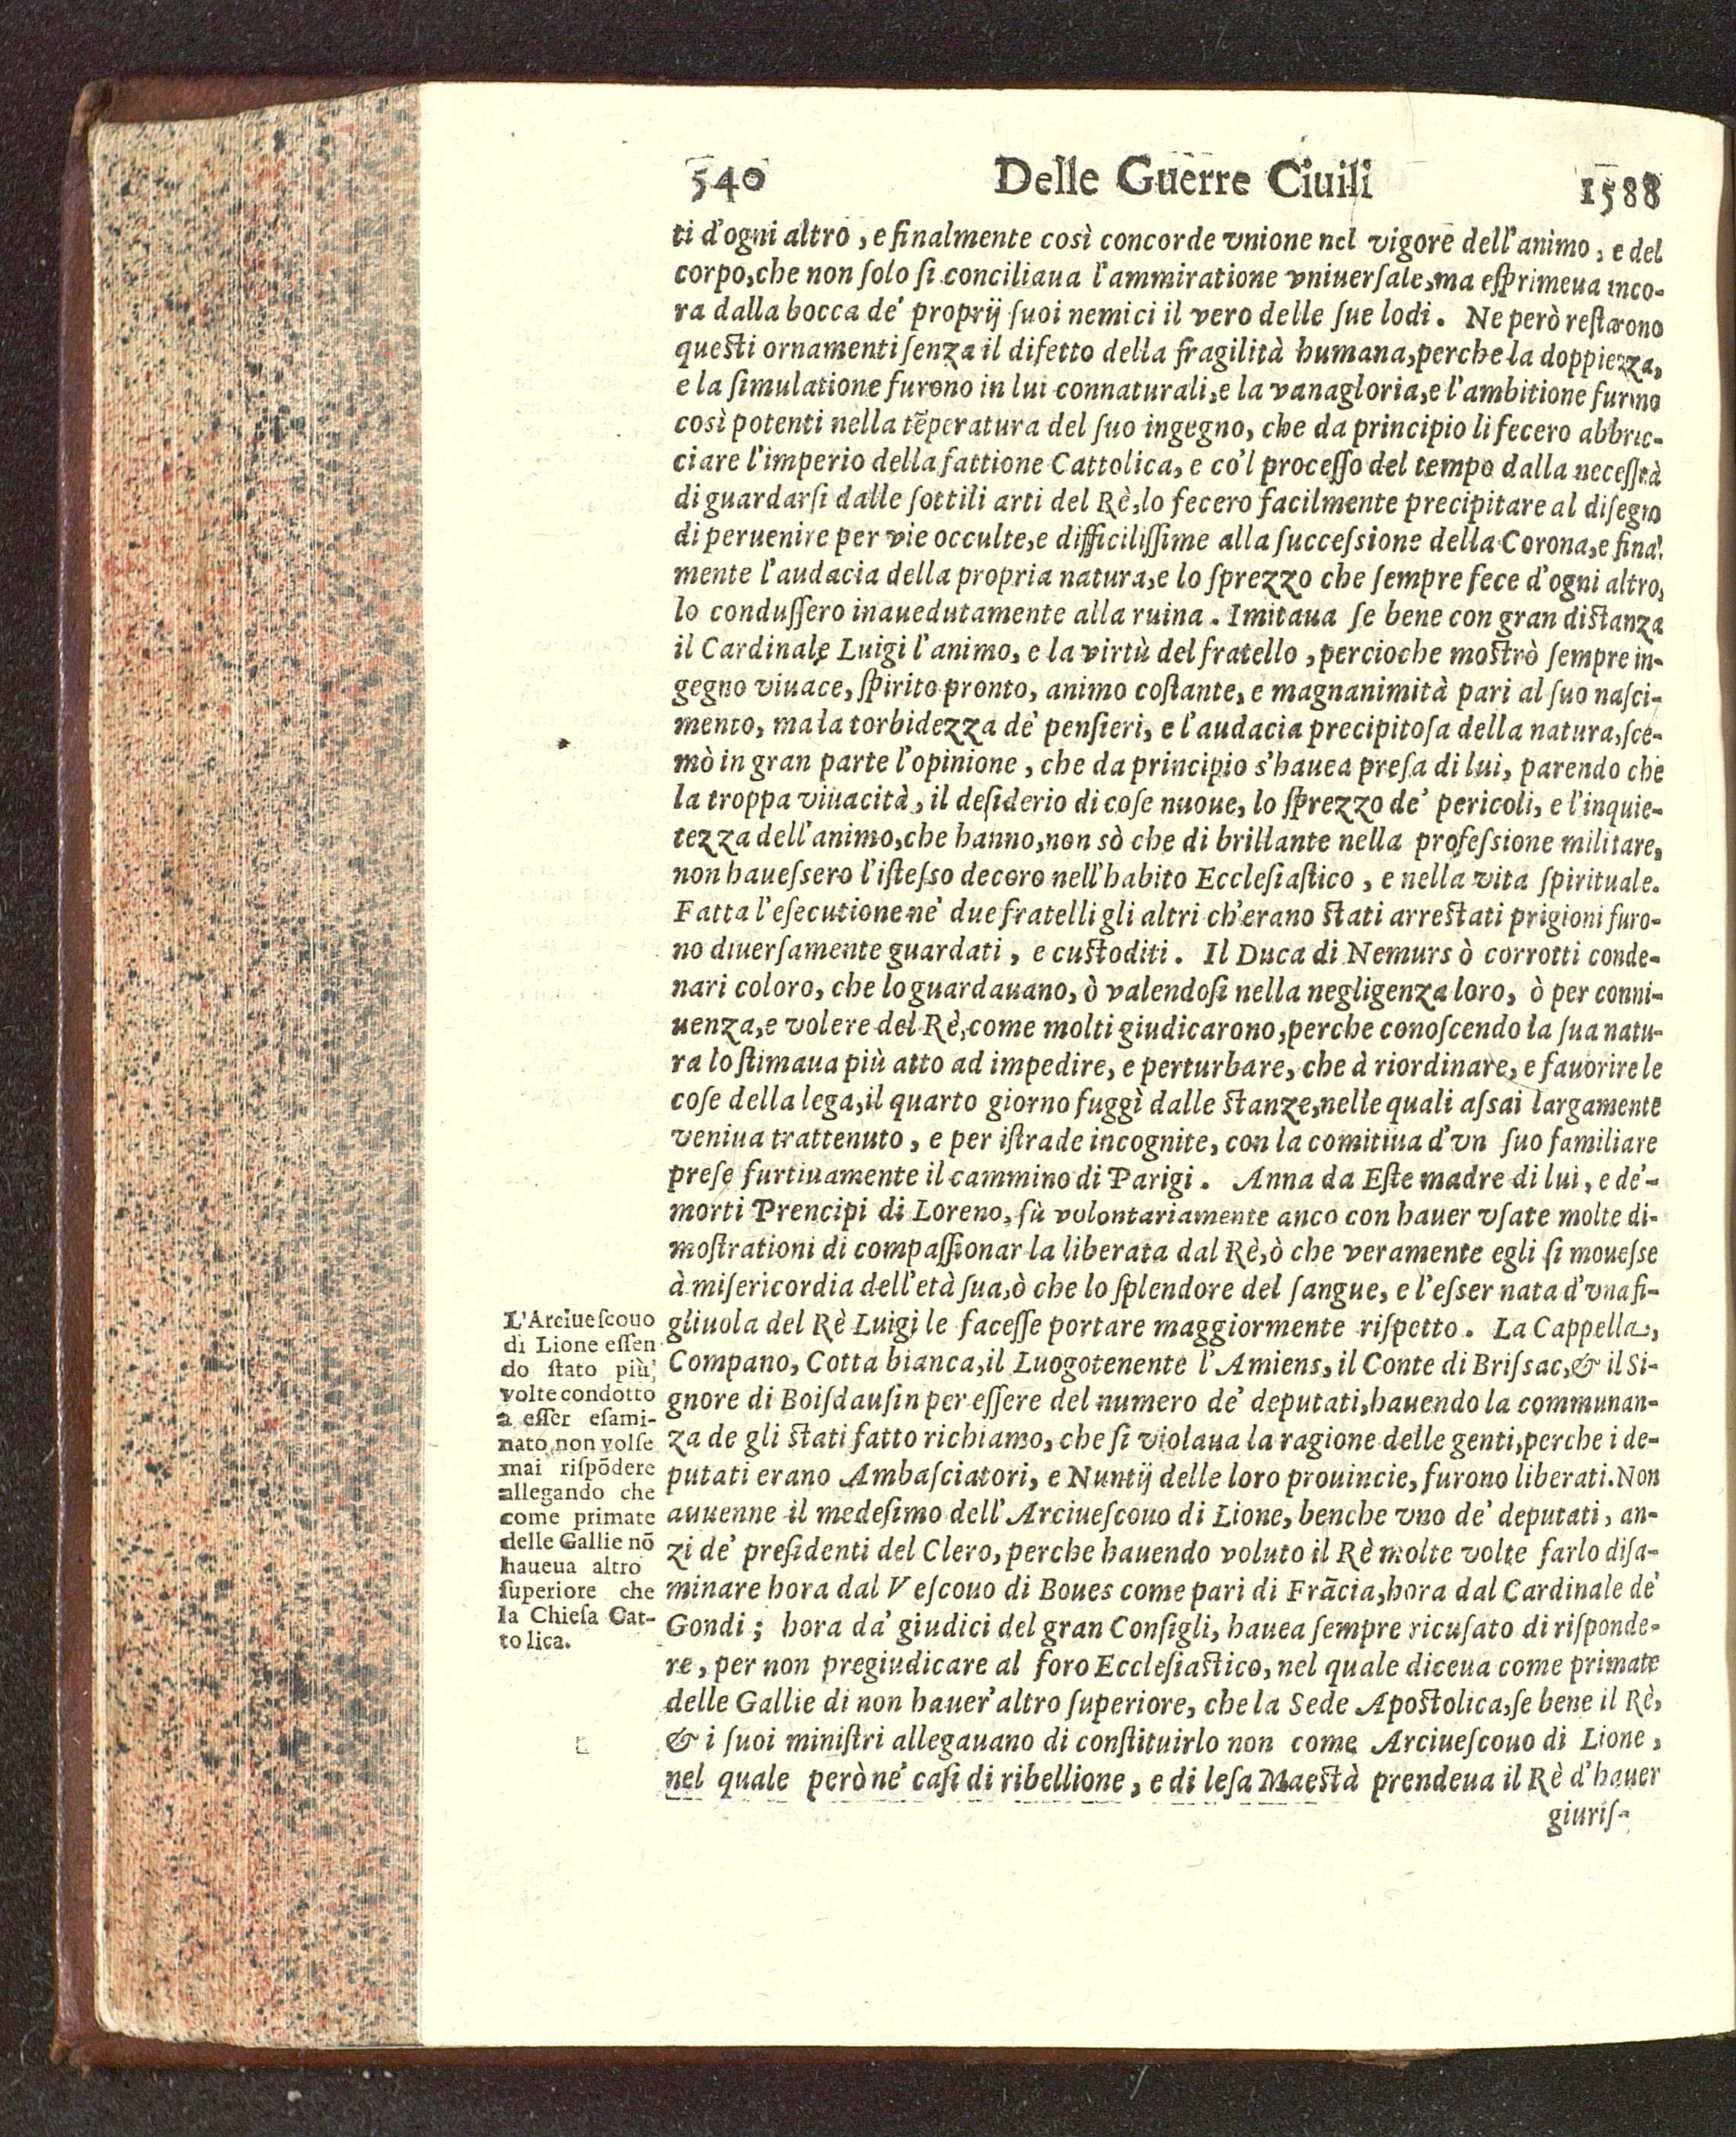 540 Delle Guerre Ciuili 1588
ti d'ogni altro, e finalmente così concorde vnione nel vigore dell'animo, e del
corpo, che non ſolo ſi conciliaua l'ammiratione vniuerſale, ma eſprimeua anco-
ra dalla bocca de' proprij ſuoi nemici il vero delle ſue lodi. Ne però reſtarono
queſti ornamenti ſenza il difetto della fragilità humana, perche la doppiezza,
e la ſimulatione furono in lui connaturali, e la vanagloria, e l'ambitione furono
così potenti nella tẽperatura del ſuo ingegno, che da principio li fecero abbrac-
ciare l'imperio della fattione Cattolica, e co'l proceſſo del tempo dalla neceſſità
di guardarſi dalle ſottili arti del Rè, lo fecero facilmente precipitare al diſegno
di peruenire per vie occulte, e difficiliſſime alla ſucceſsione della Corona, e final
mente l'audacia della propria natura, e lo ſprezzo che ſempre fece d'ogni altro,
lo conduſſero inauedutamente alla ruina. Imitaua ſe bene con gran diſtanza
il Cardinale Luigi l'animo, e la virtù del fratello, percioche moſtrò ſempre in-
gegno viuace, ſpirito pronto, animo coſtante, e magnanimità pari al ſuo naſci-
mento, ma la torbidezza de' penſieri, e l'audacia precipitoſa della natura, ſce-
mò in gran parte l'opinione, che da principio s'hauea preſa di lui, parendo che
la troppa viuacità, il deſiderio di coſe nuoue, lo ſprezzo de' pericoli, e l'inquie-
tezza dell'animo, che hanno, non sò che di brillante nella profeſsione militare,
non haueſsero l'iſteſso decoro nell'habito Eccleſiaſtico, e nella vita ſpirituale.
Fatta l'eſecutione ne' due fratelli gli altri ch'erano ſtati arreſtati prigioni furo-
no diuerſamente guardati, e cuſtoditi. Il Duca di Nemurs ò corrotti con de-
nari coloro, che lo guardauano, ò valendoſi nella negligenza loro, ò per conni-
uenza, e volere del Rè, come molti giudicarono, perche conoſcendo la ſua natu-
ra lo ſtimaua più atto ad impedire, e perturbare, che à riordinare, e fauorire le
coſe della lega, il quarto giorno fuggì dalle ſtanze, nelle quali aſsai largamente
veniua trattenuto, e per iſtrade incognite, con la comitiua d'vn ſuo familiare
preſe furtiuamente il cammino di Parigi. Anna da Eſte madre di lui, e de'-
morti Prencipi di Loreno, fù volontariamente anco con hauer vſate molte di-
moſtrationi di compaſſionar la liberata dal Rè, ò che veramente egli ſi moueſse
à miſericordia dell'età ſua, ò che lo ſplendore del ſangue, e l'eſser nata d'vna fi-
gliuola del Rè Luigi le faceſſe portare maggiormente riſpetto. La Cappella,
Compano, Cotta bianca, il Luogotenente l'Amiens, il Conte di Briſsac, & il Si-
gnore di Boiſdauſin per eſſere del numero de' deputati, hauendo la communan-
za de gli ſtati fatto richiamo, che ſi violaua la ragione delle genti, perche i de-
putati erano Ambaſciatori, e Nuntij delle loro prouincie, furono liberati. Non
auuenne il medeſimo dell'Arciueſcouo di Lione, benche vno de' deputati, an-
zi de' preſidenti del Clero, perche hauendo voluto il Rè molte volte farlo diſa-
minare hora dal Veſcouo di Boues come pari di Frãcia, hora dal Cardinale de'
Gondi; hora da' giudici del gran Conſigli, hauea ſempre ricuſato di riſponde-
re, per non pregiudicare al foro Eccleſiaſtico, nel quale diceua come primate
delle Gallie di non hauer' altro ſuperiore, che la Sede Apoſtolica, ſe bene il Rè,
& i ſuoi miniſtri allegauano di conſtituirlo non come Arciueſcouo di Lione,
nel quale però ne' caſi di ribellione, e di leſa Maeſtà prendeua il Rè d'hauer
giuriſ-
L'Arciueſcouo
di Lione eſſen
do ſtato più
volte condotto
a eſſer eſami-
nato non volſe
mai riſpõdere
allegando che
come primate
delle Gallie nõ
haueua altro
ſuperiore che
la Chieſa Cat-
to lica.